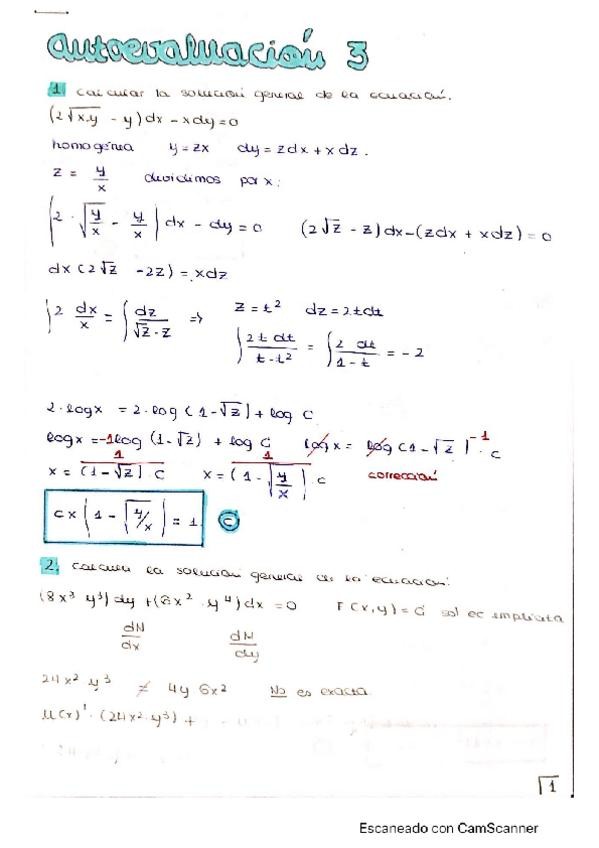 autoevaluación 3
1 calcular la solución general de la ecuación.
(2√x.y - y) dx - x dy = 0
homogénea y = zx dy = z dx + x dz.
z = y/x dividimos por x:
(2 · √(y/x) - y/x) dx - dy = 0 (2√z - z) dx - (z dx + x dz) = 0
dx (2√z - 2z) = x dz
∫ 2 dx/x = ∫ dz/(√z - z) => z = t² dz = 2t dt
∫ 2t dt/(t - t²) = ∫ 2 dt/(1 - t) = -2
2 · log x = 2 · log (1 - √z) + log C
log x = -1 log (1 - √z) + log C log x = log (1 - √z)⁻¹ · C
x = 1/(1 - √z) · C x = 1/(1 - √(y/x)) · C corrección
cx (1 - √(y/x)) = 1 C
2. calcular la solución general de la ecuación:
(8x³ y³) dy + (6x² · y⁴) dx = 0 F(x,y) = C sol ec implícita
dN/dx dN/dy
24x² y³ ≠ 4y 6x² No es exacta
μ(x)' · (24x² · y³) +
1
Escaneado con CamScanner